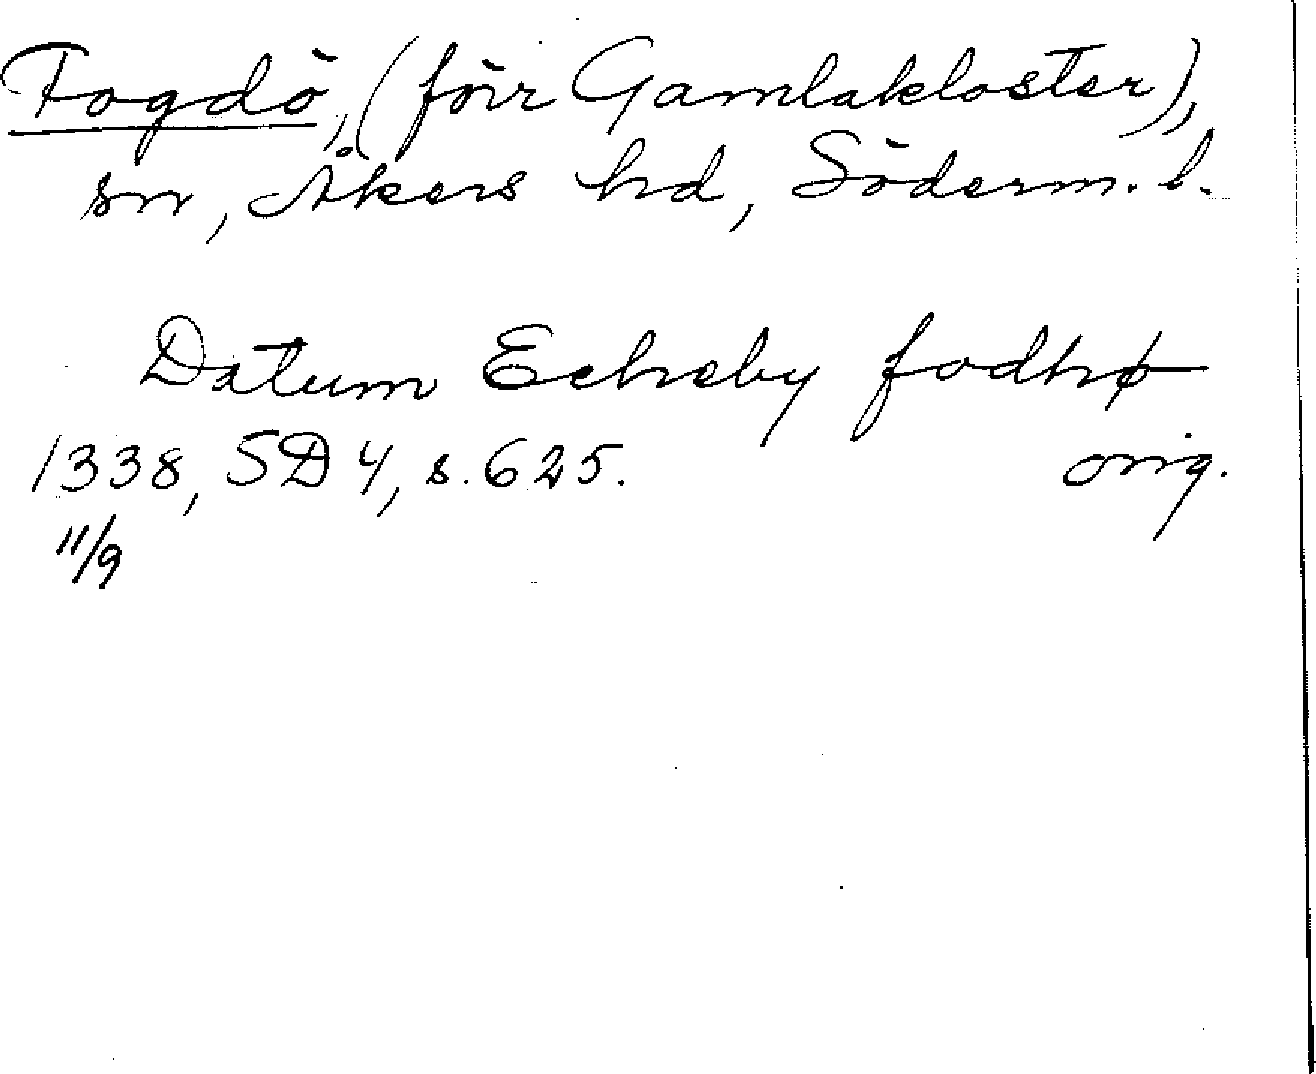 Fogdö, (förr Gamlakloster),
sn, Åkers hd, Söderm. l.
Datum Eekeby fodhø
1338, SD 4, s. 625. orig.
11/9